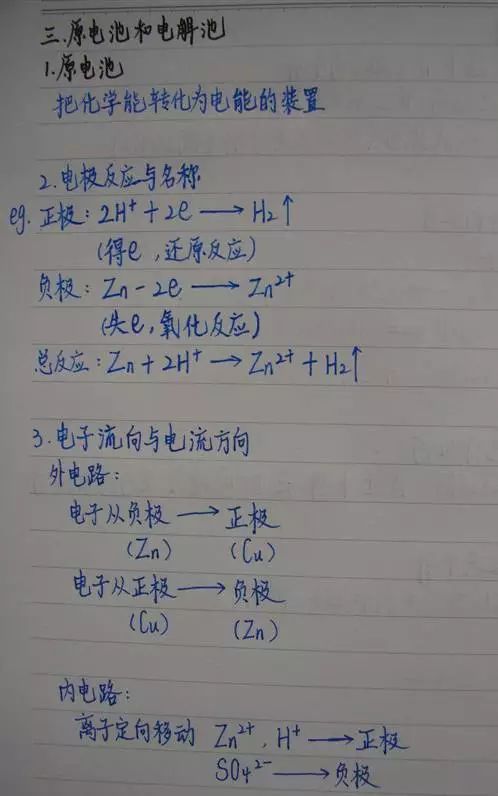 三.原电池和电解池
1.原电池
把化学能转化为电能的装置
2.电极反应与名称
eg. 正极：2H⁺ + 2e ⟶ H₂↑
(得e，还原反应)
负极：Zn - 2e ⟶ Zn²⁺
(失e，氧化反应)
总反应：Zn + 2H⁺ ⟶ Zn²⁺ + H₂↑
3.电子流向与电流方向
外电路：
电子从负极 ⟶ 正极
(Zn) (Cu)
电子从正极 ⟶ 负极
(Cu) (Zn)
内电路：
离子定向移动 Zn²⁺, H⁺ ⟶ 正极
SO₄²⁻ ⟶ 负极